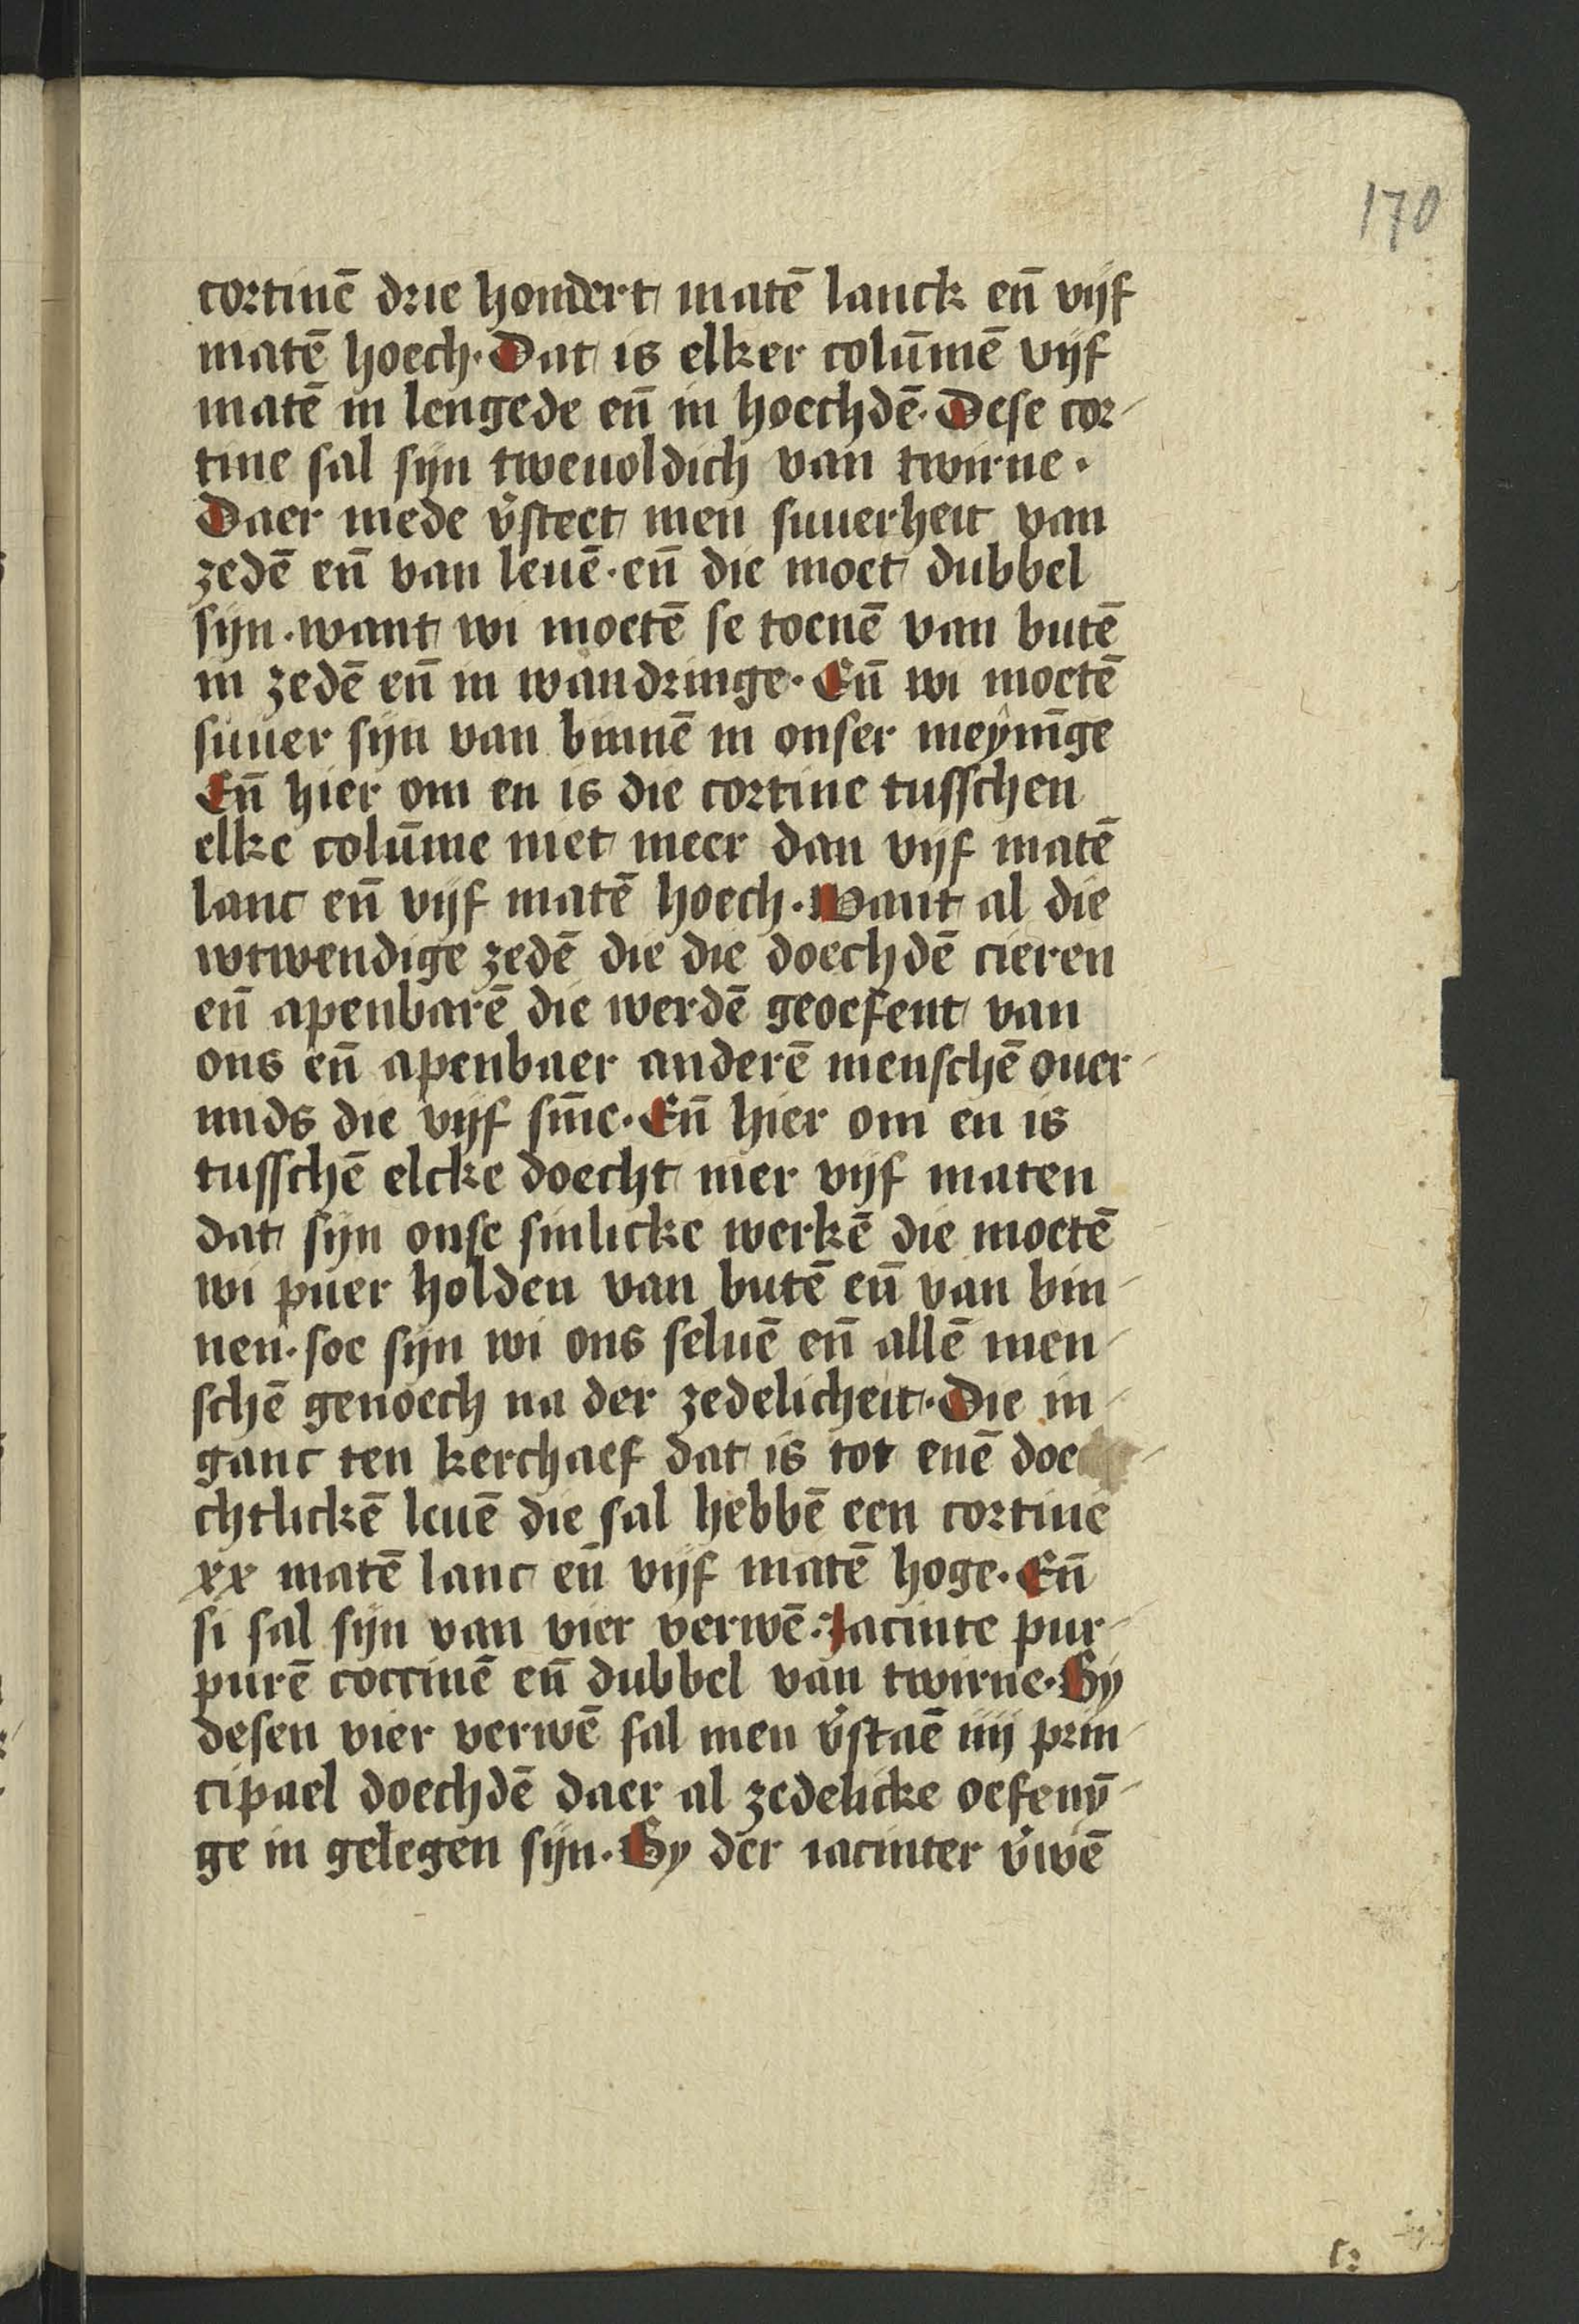 170
cortinē drie hondert matē lanck en̄ vijf
matē hoech. Dat is elker colūmē vijf
matē in lengede en̄ in hoechdē. Dese cor-
tine sal sijn tweuoldich van twirne.
Daer mede v̓steet men suuerheit van
zedē en̄ van leuē. en̄ die moet dubbel
sijn. want wi moetē se toenē van butē
in zedē en̄ in wandringe. En̄ wi moetē
suuer sijn van binnē in onser meynīge
En̄ hier om en is die cortine tusschen
elke colūme niet meer dan vijf matē
lanc en̄ vijf matē hoech. Want al die
wtwendige zedē die die doechdē cieren
en̄ apenbarē die werdē geoefent van
ons en̄ apenbaer anderē menschē ouer-
mids die vijf sīne. En̄ hier om en is
tusschē elcke doecht mer vijf maten
dat sijn onse sinlicke werkē die moetē
wi puer holden van butē en̄ van bin-
nen. soe sijn wi ons seluē en̄ allē men-
schē genoech na der zedelicheit. Die in-
ganc ten kerchaef dat is tot enē doe-
chtlickē leuē die sal hebbē een cortine
xx matē lanc en̄ vijf matē hoge. En̄
si sal sijn van vier verwē. Jacinte pur-
purē coccinē en̄ dubbel van twirne. By
desen vier verwē sal men v̓staē iiij prin-
cipael doechdē daer al zedelicke oefenȳ-
ge in gelegen sijn. By der iacinter v̓wē